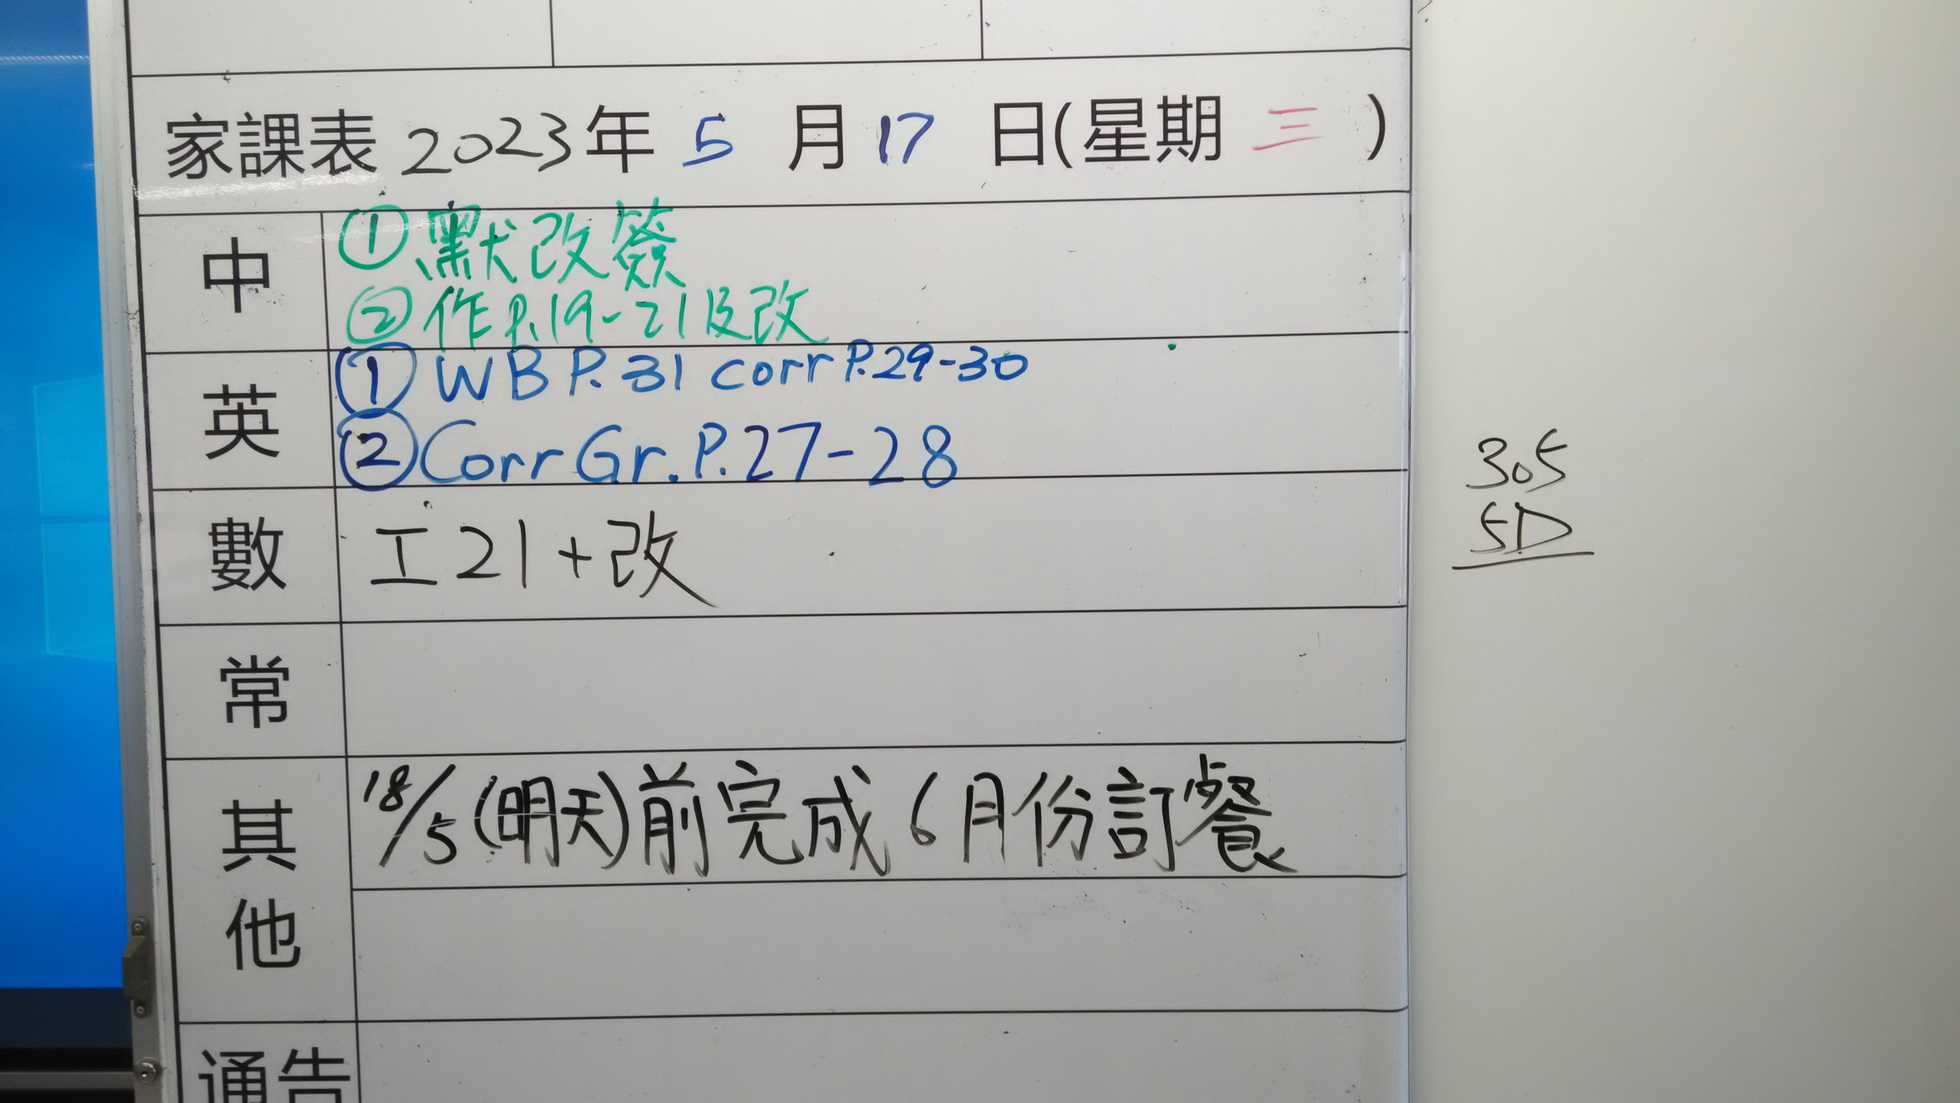 家課表 2023年 5 月 17 日(星期 三 )
中
① 默改簽
② 作P.19-21及改
英
① WB P.31 corr P.29-30
② Corr Gr. P.27-28
數
工21+改
常
其他
18/5 (明天)前完成6月份訂餐
通告
305
5D